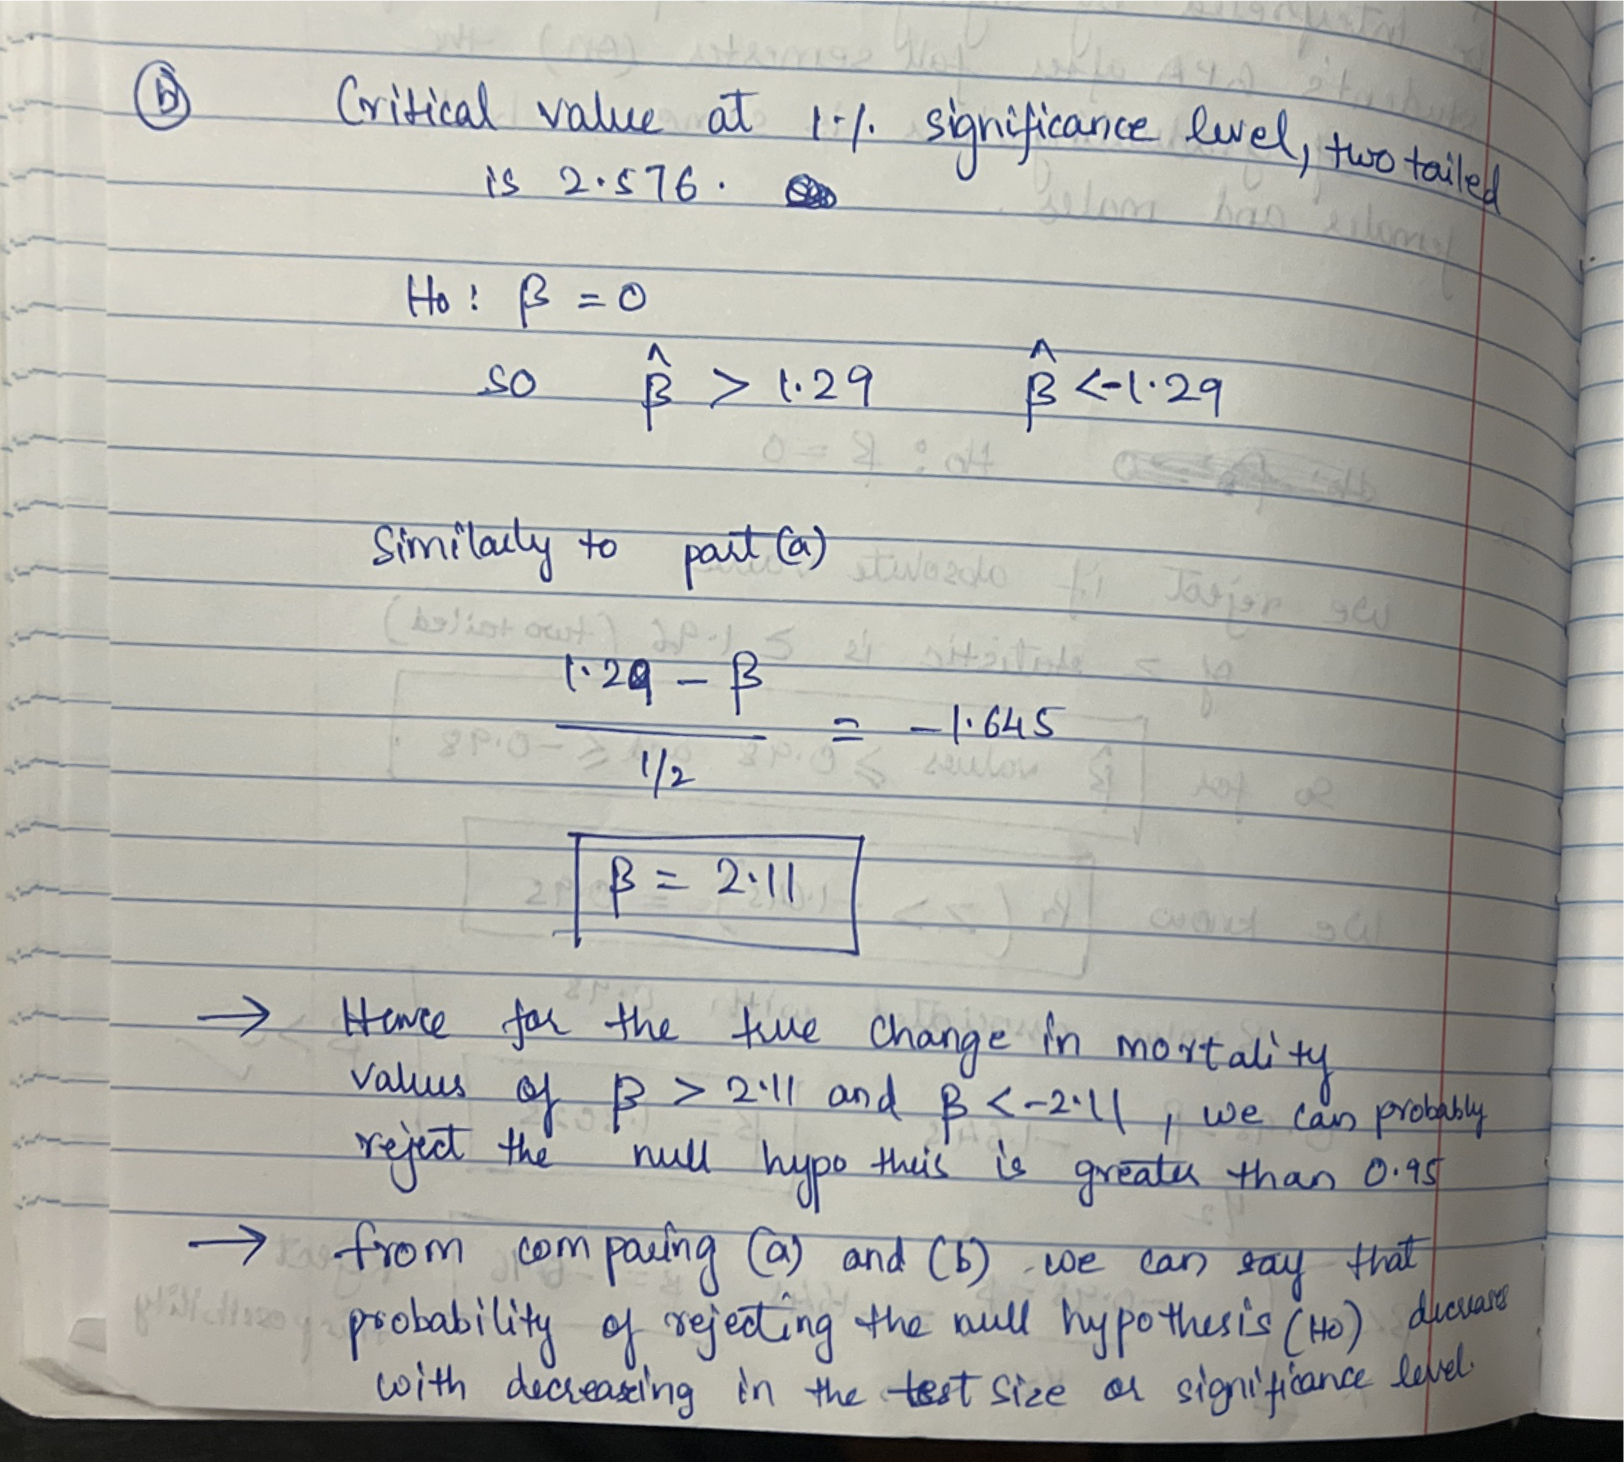 (b) Critical value at 1% significance level, two tailed
is 2.576.
Ho: β = 0
so β̂ > 1.29 β̂ <-1.29
Similarly to part (a)
1.29 - β
1/2
= -1.645
β = 2.11
→ Hence for the true change in mortality
values of β > 2.11 and β <-2.11, we can probably
reject the null hypo theis is greater than 0.95
→ from comparing (a) and (b) we can say that
probability of rejecting the null hypothesis (Ho) decreases
with decreasing in the test size or significance level.